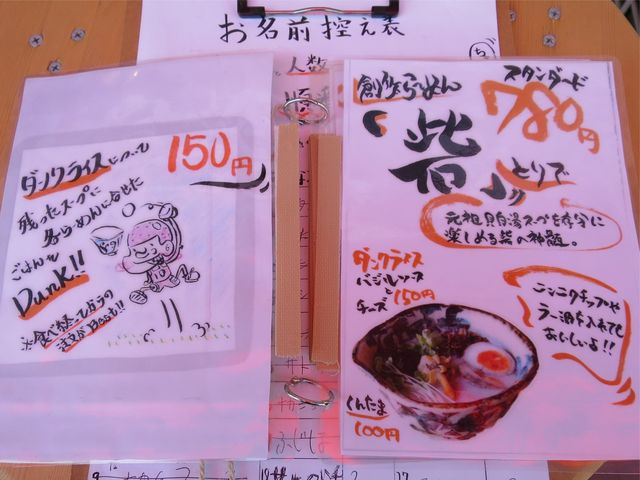 お名前控え表
人数
ダンクライスについて
150円
残ったスープに
各らーめんに合せた
ごはんを
Dunk!!
※食べ終ってからの
注文がBest!!
創作らーめん
スタンダード
780円
「砦」
とりで
元祖貝白湯スープを存分に
楽しめる砦の神髄。
ダンクライス
バジルソースと
チーズ
150円
ニンニクチップや
ラー油を入れても
おいしい!!
くんたま
100円